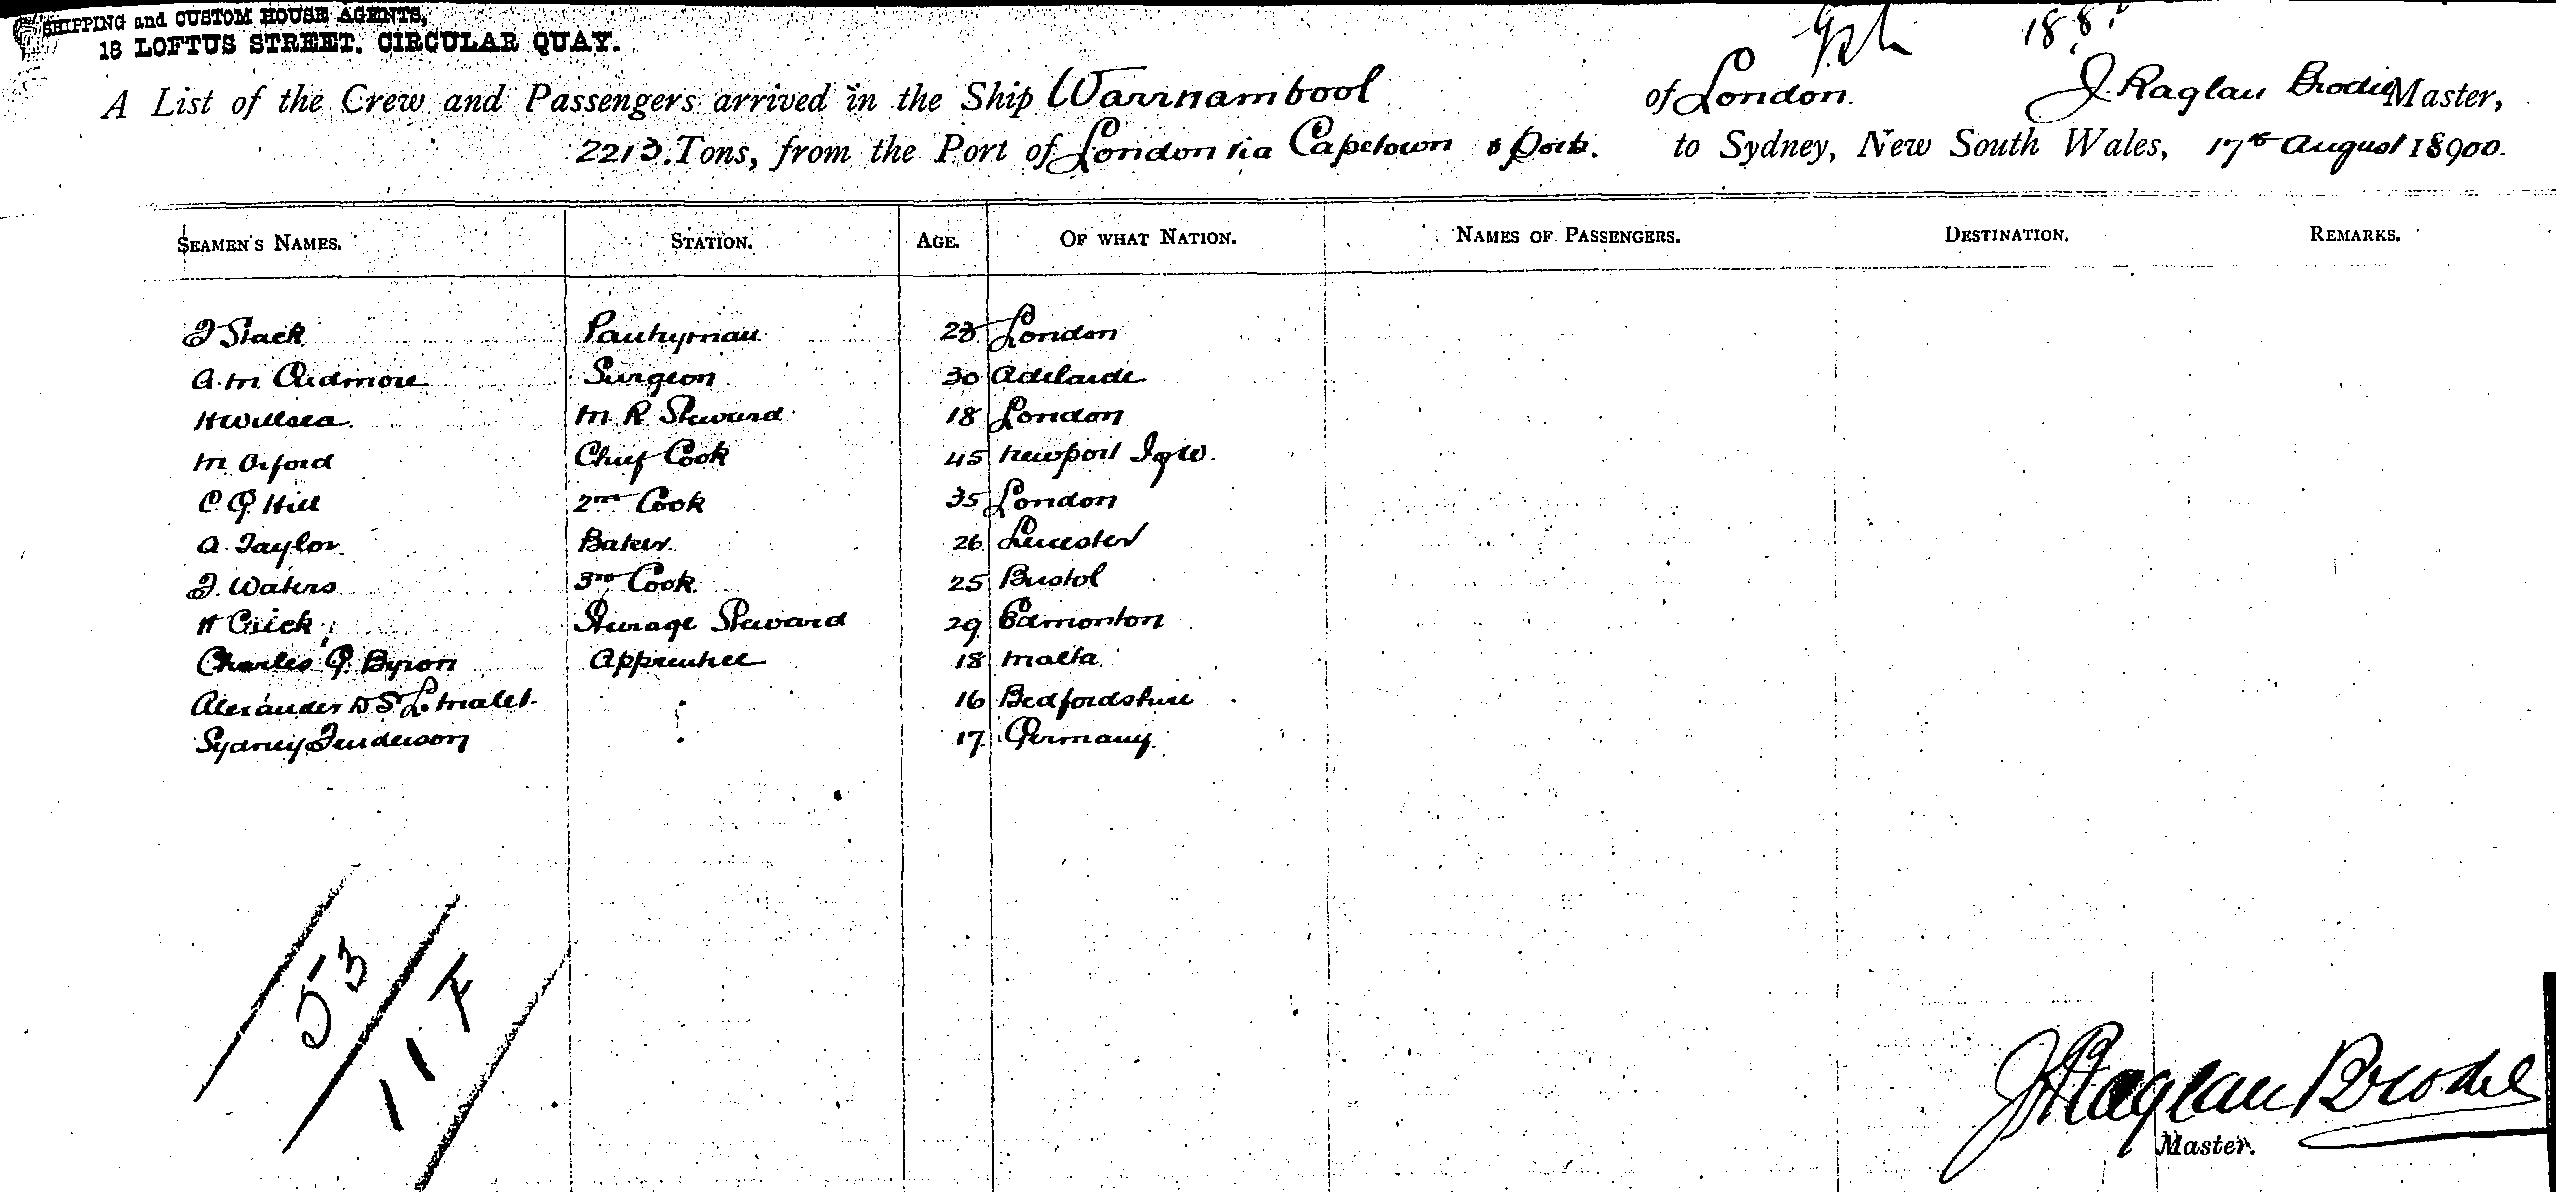 SHIPPING and CUSTOM HOUSE AGENTS,
18 LOFTUS STREET. CIRCULAR QUAY.
A List of the Crew and Passengers arrived in the Ship Warrnambool of London. J. Raglan Brodie Master,
2213. Tons, from the Port of London via Capetown & Ports. to Sydney, New South Wales, 17th August 18900.
SEAMEN'S NAMES. STATION. AGE. OF WHAT NATION. NAMES OF PASSENGERS. DESTINATION. REMARKS.
J Stack Pantryman 23 London
A. M Surgeon 30 Adelaide
H Willsea M R Steward 18 London
M Orford Chief Cook 45 Newport I of W.
C G Hill 2nd Cook 35 London
A. Taylor Baker 26 Leicester
J. Waters 3rd Cook 25 Bristol
H Crick Steerage Steward 29 Edmonton
Charles G. Byron Apprentice 18 Malta
Alexander D S L. Malet 16 Bedfordshire
Sydney Henderson 17 Germany
53
11 F
J Raglan Brodie
Master.